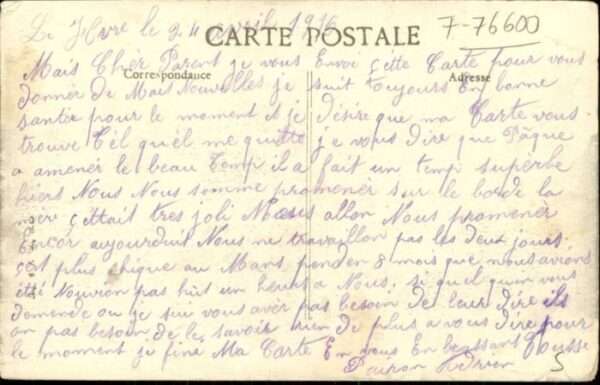 Le Havre le 24 avril 1916
7-76600
CARTE POSTALE
Correspondance
Adresse
Mais Chèr Parent je vous Envoi cette Carte pour vous
donner de Mais Nouvelles je suit toujours En bonne
santer pour le moment et je désire que ma Carte vous
trouve tél quél me quitte je vous dire que Pâque
a amener le beau temp il a fait un temp superbe
hiers Nous Nous somme promener sur le borde la
mèr cettait tres joli Nous allon Nous promener
Encor aujourduit Nous ne travaillon pas les deux jours
cet plus chique au Mans penden 8 mois que nous avions
été Nouvion pas huit un heurs a Nous, si quelquen vous
demende ou je sui vous avér pas besoin de leur dire ils
on pas besoin de le savoir rien de plus a vous dire pour
le moment je finé Ma Carte En vous En brassant Tousse
Adrien
5